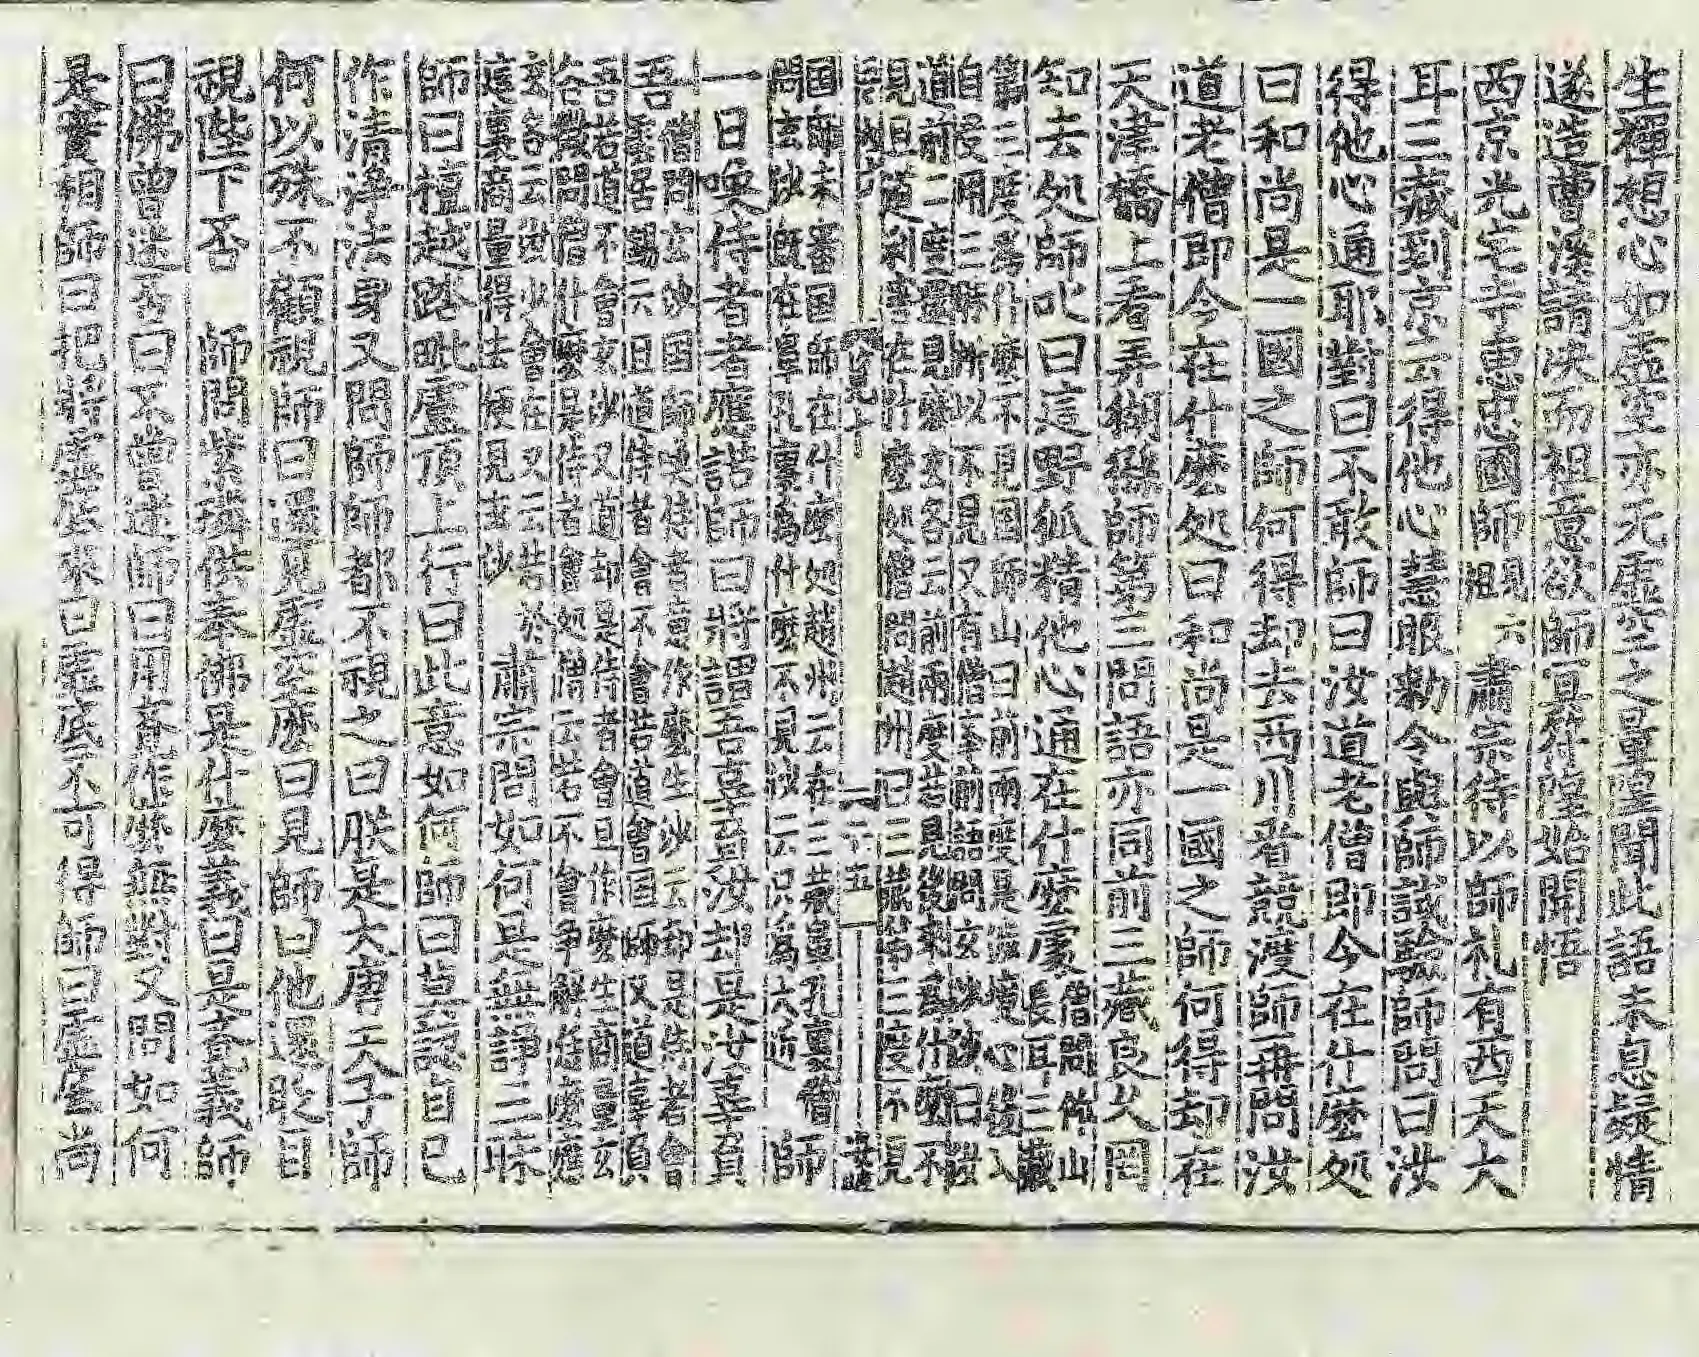 生禪想心如虛空亦无虛空之量隍聞此語未息疑情
遂造曹溪請決而祖意欲師
隍始開悟
西京光宅寺惠忠國師
肅宗待以師礼有西天大
耳三藏到京云得他心慧眼勅令與師試驗師問曰汝
得他心通耶對曰不敢師曰汝道老僧即今在什麽処
曰和尚是一國之師何得却去西川看競渡師再問汝
道老僧即今在什麽処曰和尚是一國之師何得却在
天津橋上看弄猢猻師第三問語亦同前三藏良久罔
知去処師叱曰這野狐精他心通在什麽處
僧問仰山
長耳三藏
第三度爲什麽不見國師山曰前兩度是涉境心後入
自受用三昧所以不見又有僧擧前語問玄沙沙曰汝
道前二度還見麽
前兩度若見後來爲什麽不
見且道利害在什麽処僧問趙州曰三藏第三度不見
国師未審国師在什麽処趙州云在三藏鼻孔裏僧
問玄沙旣在鼻孔裏爲什麽不見沙云只爲太近
師
一日喚侍者者應諾師曰將謂吾辜負汝却是汝辜負
吾
僧問玄沙国師喚侍者意作麽生沙云却是侍者會
云且道侍者會不會若道會国師又道辜負
吾若道不會玄沙又道却是侍者會且作麽生商量玄
徵問僧什麽是侍者會処僧云若不會爭解恁麽應
玄
云汝少會在又云若
於
這裏商量得去便見玄沙
肅宗問如何是無諍三昧
師曰檀越踏毗盧頂上行曰此意如何師曰莫認自己
作清淨法身又問師師都不視之曰朕是大唐天子師
何以殊不顧視師曰還見虛空麽曰見師曰他還眨目
視陛下否
師問紫璘供奉佛是什麽義曰是覺義師
曰佛曾迷否曰不曾迷師曰用覺作麽無對又問如何
是實相師曰把將虛底來曰虛底不可得師曰虛底尚